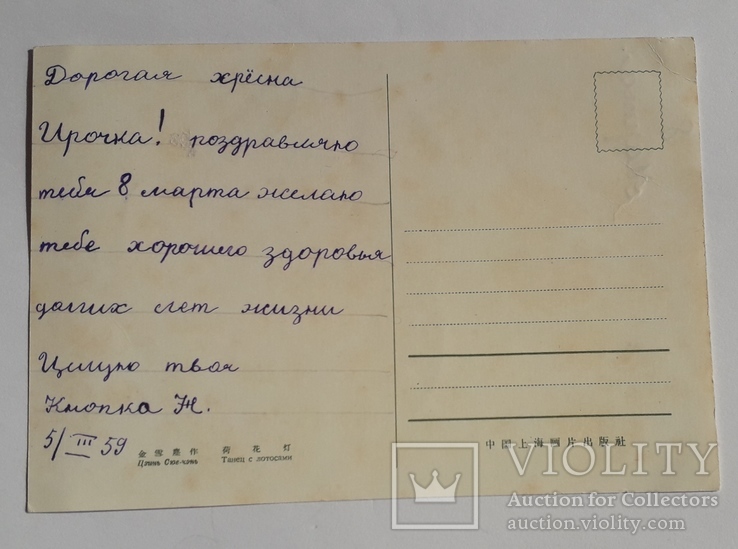 Дорогая хрёсна
Ирочка! поздравляю
тебя 8 марта желаю
тебе хорошего здоровья
долгих лет жизни
Цилую твоя
Кнопка Н.
5/III 59
金雪塵作 荷花灯
Цзинь Сюе-чэнь Танец с лотосами
中國上海畫片出版社
VIOLITY
Auction for Collectors
auction.violity.com